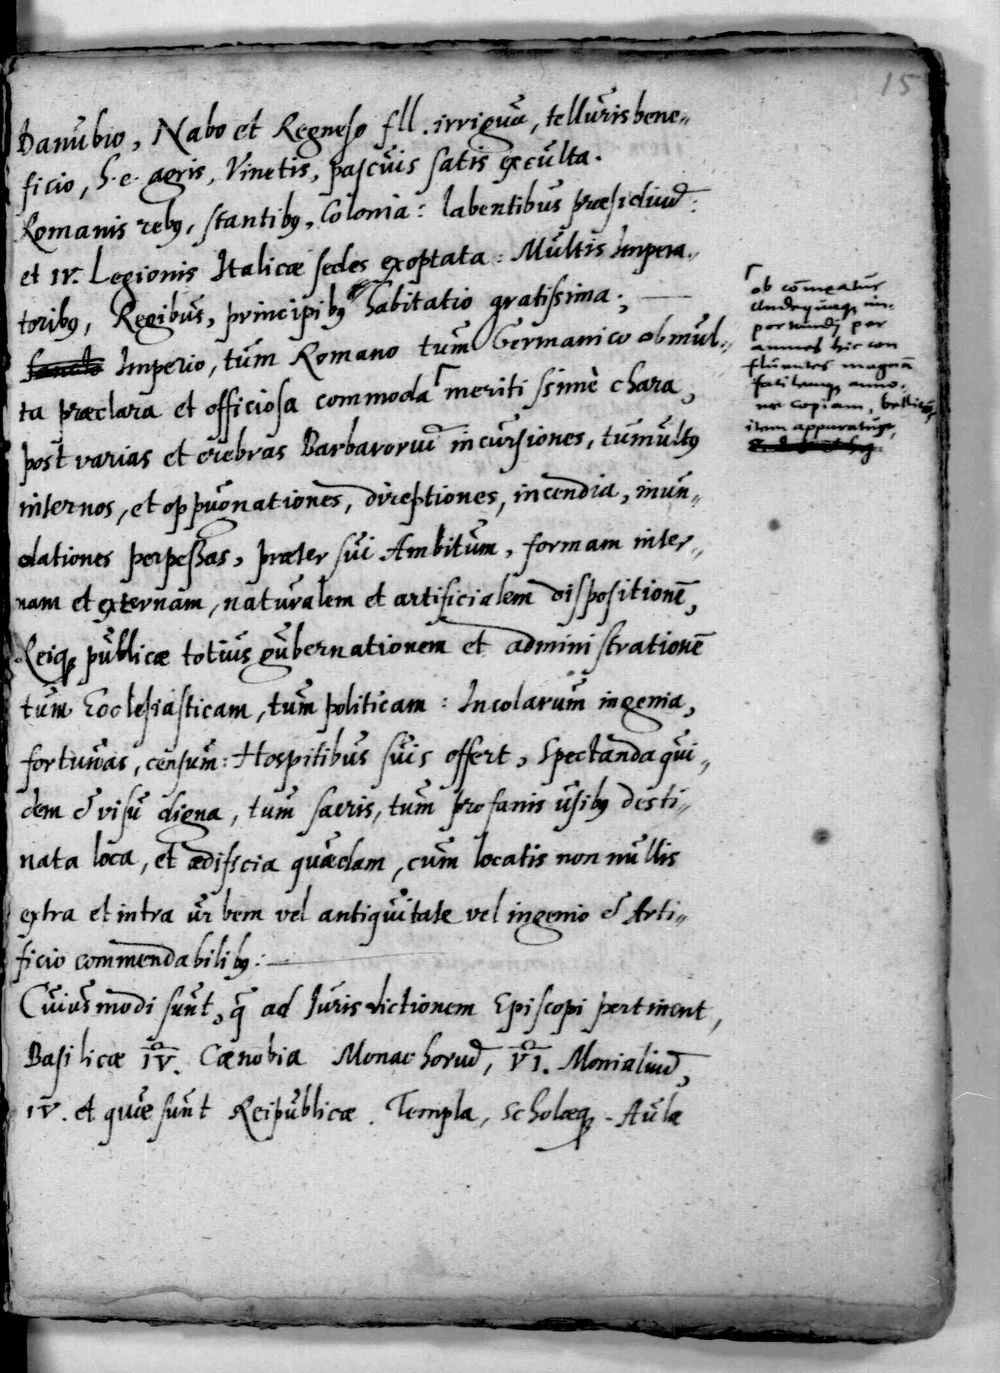 15
Danubio, Nabo et Regneso fll. irrigua, telluris bene„
ficio, h. e. agris, Vinetis, pascuis satis exculta.
Romanis rebꝰ, stantibꝰ, Colonia: labentibus præsidiũ:
et IV. Legionis Italicæ sedes exoptata: Multis Impera„
toribꝰ, Regibus, principibꝰ habitatio gratissima;
sancto Imperio, tum Romano tum Germanico ob mul„
ta præclara et officiosa commoda ⌈meritissimè chara,
post varias et crebras Barbarorũ incursiones, tumultꝰ
internos, et oppugnationes, direptiones, incendia, inun„
dationes perpessas, præter sui Ambitum, formam inter„
nam et externam, naturalem et artificialem dispositionẽ,
Reiqꝫ publicæ totius gubernationem et administrationẽ
tum Ecclesiasticam, tum politicam: Incolarum ingenia,
fortunas, censum: Hospitibus suis offert, Spectanda qui„
dem & visu digna, tum sacris, tum profanis usibꝰ desti„
nata loca, et ædificia quædam, cum locatis non nullis
extra et intra urbem vel antiquitate vel ingenio & Arti„
ficio commendabilibꝰ:
Cuiusmodi sunt, q̃ ad Jurisdictionem Episcopi pertinent,
Basilicæ IV. Cænobia Monachorũ, VI. Monialiũ,
IV. et quæ sunt Reipublicæ. Templa, Scholæqꝫ. Aulæ
⌈ob cõmeatus
undequaqꝫ im„
portandi per
amnes hic con
fluentes magnã
anno„
næ copiam, bellicũ,
item apparatũqꝫ,